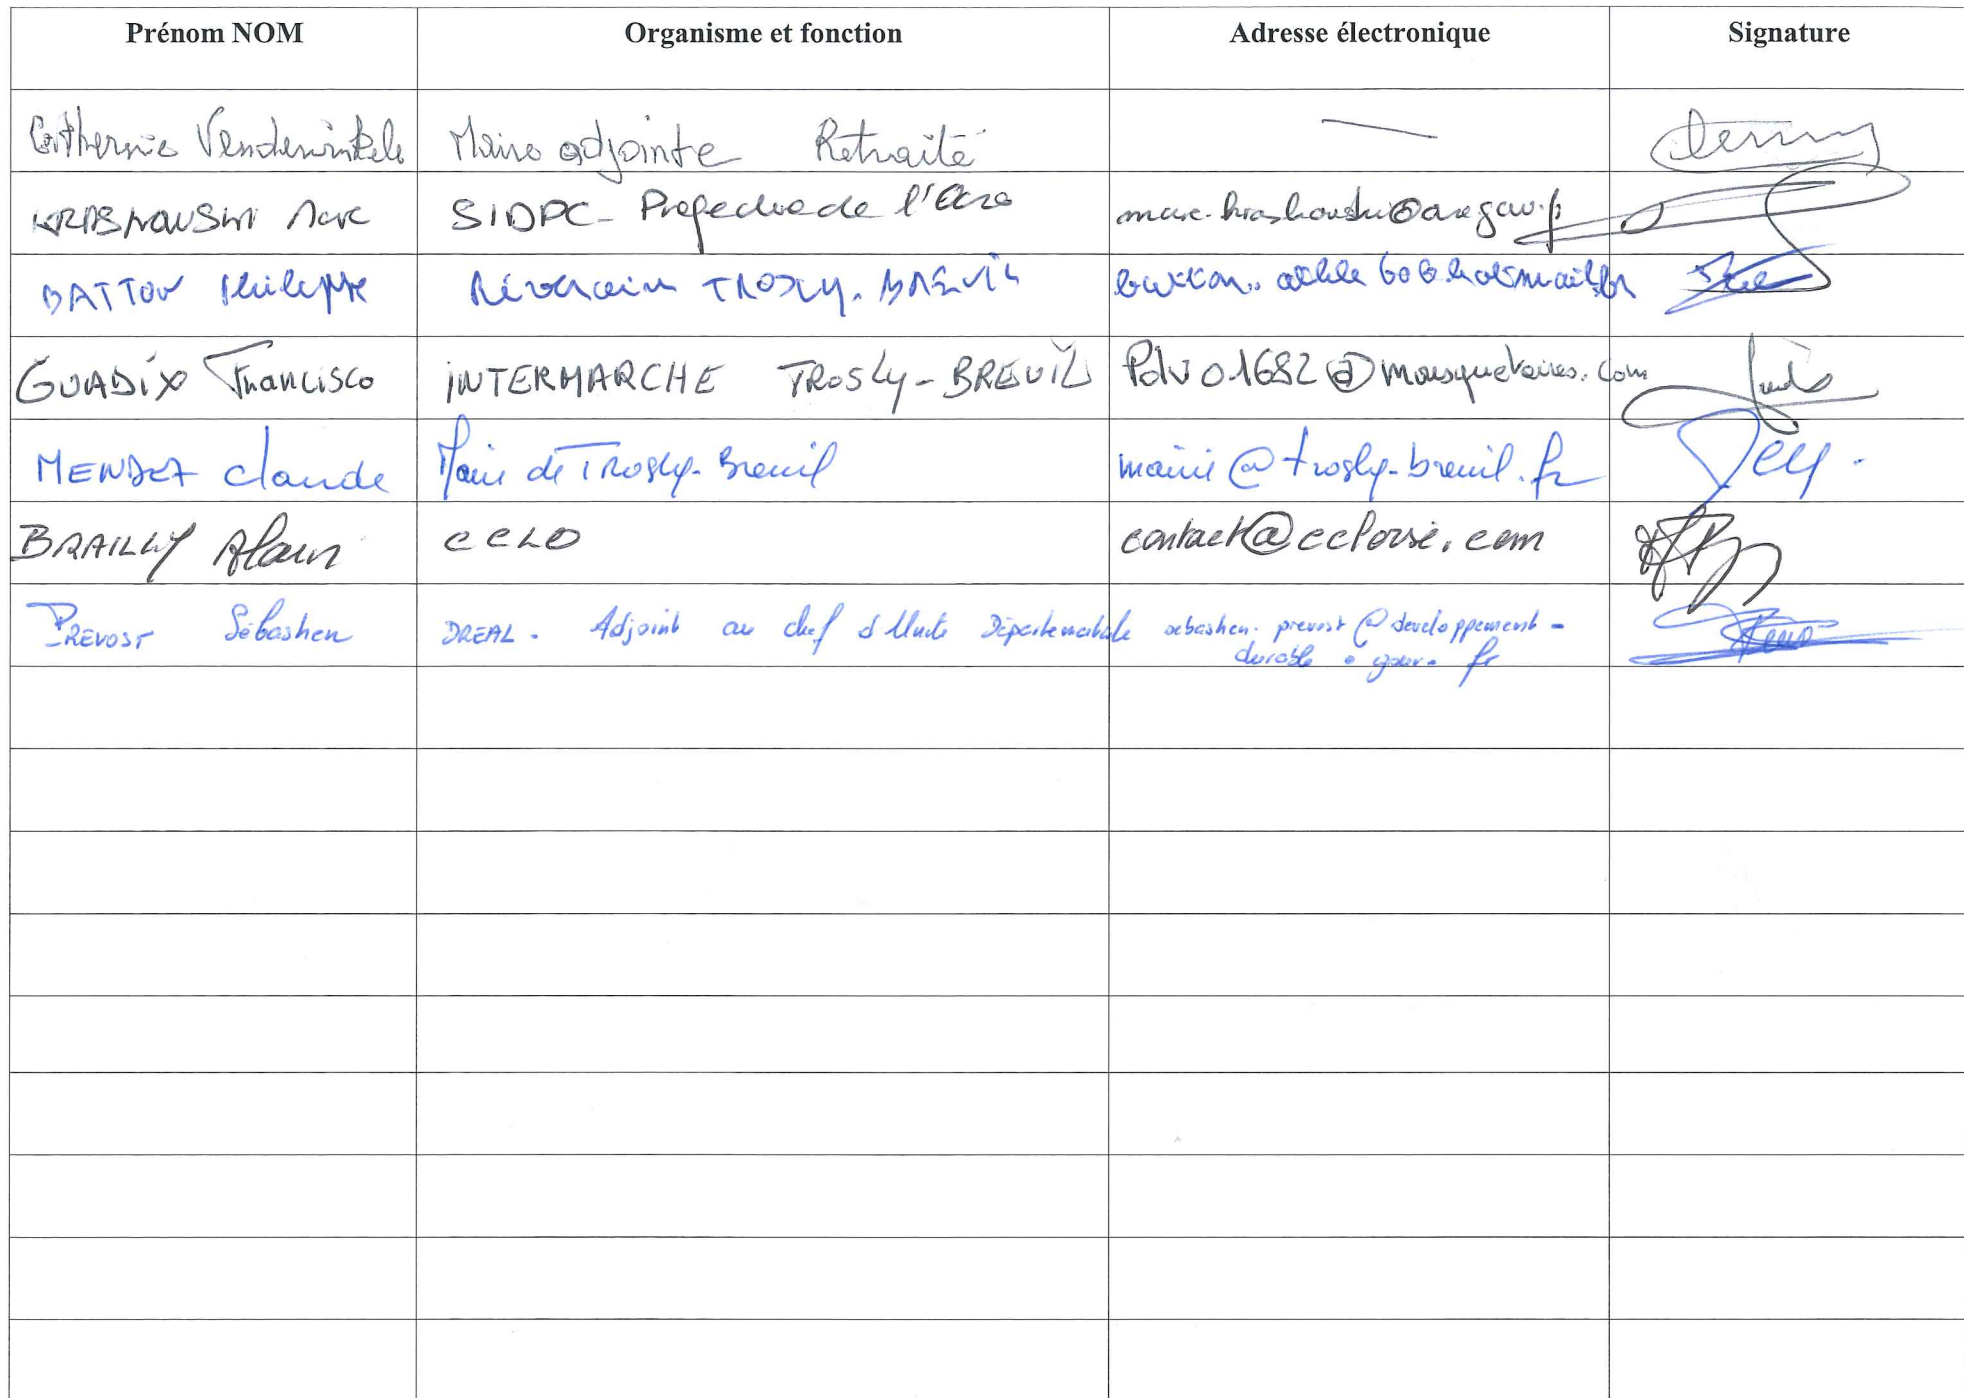 Prénom NOM Organisme et fonction Adresse électronique Signature
Catherine Vendewinkele Maire adjointe Retraité
Marc SIDPC - Prefecture de l'Oise
BATTON Philippe Riverain TROSLY. BREUIL
GUADIX Francisco INTERMARCHE TROSLY-BREUIL Pdv01682@mousquetaires.com
MENDEZ Claude Maire de Trosly-Breuil mairie@trosly-breuil.fr
BRAILLY Alain CCLO contact@ccloise.com
PREVOST Sébastien DREAL. Adjoint au chef d'Unité Départementale sebastien.prevost@developpement-
durable.gouv.fr